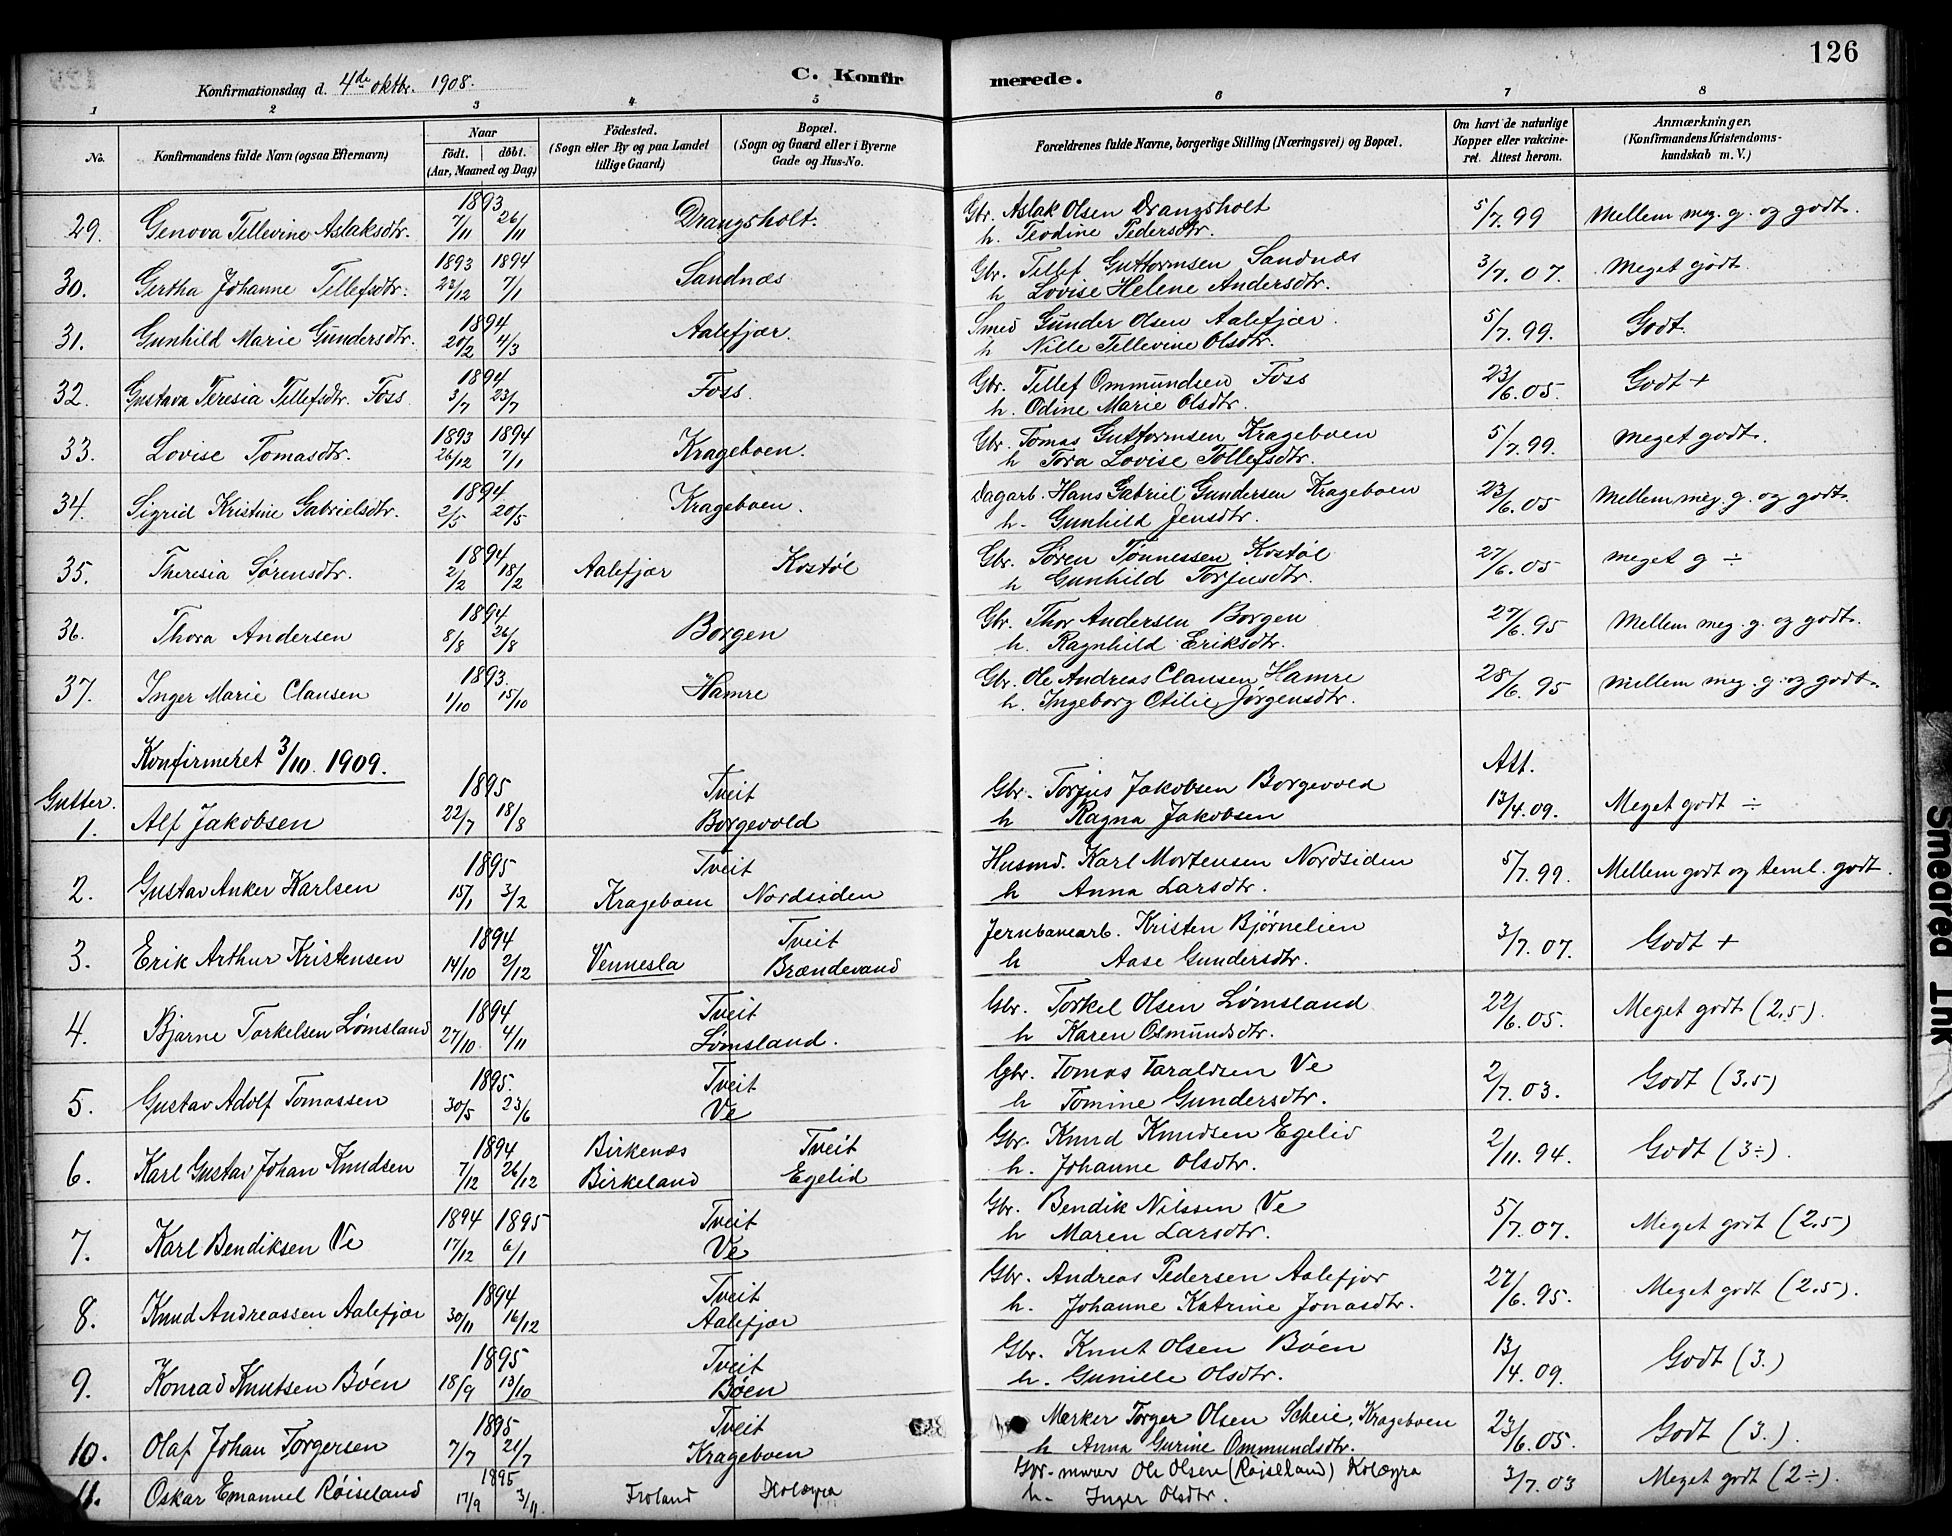 126
Konfirmationsdag d. 4de oktbr. 1908.
C. Konfirmerede.
1 2 3 4 5 6 7 8
No.
Konfirmandens fulde Navn (ogsaa Efternavn)
Naar
födt. | döbt.
(Aar, Maaned og Dag)
Födested.
(Sogn eller By og paa Landet
tillige Gaard)
Bopæl.
(Sogn og Gaard eller i Byerne
Gade og Hus-No.
Forældrenes fulde Navne, borgerlige Stilling (Næringsvei) og Bopæl.
Om havt de naturlige
Kopper eller vakcine-
ret. Attest herom.
Anmærkninger.
(Konfirmandens Kristendoms-
kundskab m. V.)
29. Genova Tellevine Aslaksdtr. 1893 7/11 26/11 Drangsholt. Gbr. Aslak Olsen Drangsholt 5/7.99 Mellem meg. g. og godt.
h. Teodine Pedersdtr.
30. Gertha Johanne Tellefsdtr. 1893 23/12 1894 7/1 Sandnæs Gbr. Tellef Guttormsen Sandnæs 3/7.07. Meget godt.
h Lovise Helene Andersdtr.
31. Gunhild Marie Gundersdtr. 1894 20/2 4/3 Aalefjær. Smed Gunder Olsen Aalefjær. 5/7.99. Godt.
h Nille Tellevine Olsdtr.
32. Gustava Teresia Tellefsdtr. Foss 1894 3/7 23/7 Foss. Gbr. Tellef Ommundsen Foss 23/6.05. Godt +
h. Odine Marie Olsdtr.
33. Lovise Tomasdtr. 1893 26/12 1894 7/1 Krageboen. Gbr. Tomas Guttormsen Krageboen 5/7.99. Meget godt.
h Tora Lovise Tollefsdtr.
34. Sigrid Kristine Gabrielsdtr. 1894 2/5 20/5 Krageboen. Dagarb. Hans Gabriel Gundersen Krageboen 23/6.05 Mellem meg. g. og godt.
h. Gunhild Jensdtr.
35. Theresia Sørensdtr. 1894 2/2 18/2 Aalefjær Kostøl Gbr. Søren Tønnessen Kostøl 27/6.05 meget g ÷
h Gunhild Torjusdtr.
36. Thora Andersen 1894 8/8 26/8 Borgen Gbr. Thor Andersen Borgen 27/6.95 Mellem meg. g. og godt.
h. Ragnhild Eriksdtr.
37. Inger Marie Clausen 1893. 1/10 15/10 Hamre Gbr. Ole Andreas Clausen Hamre 28/6.95 Mellem meg. g. og godt.
h. Ingeborg Otilie Jørgensdtr.
Konfirmeret 3/10. 1909.
Att.
Gutter.
1. Alf Jakobsen 1895 22/7 18/8 Tveit Borgevold Gbr. Torjus Jakobsen Borgevold 13/4.09. Meget godt ÷
h Ragna Jakobsen
2. Gustav Anker Karlsen 1895 15/1 3/2 Tveit Krageboen Nordsiden Husmd. Karl Mortensen Nordsiden 5/7.99. Mellem godt og teml. godt.
h Anna Larsdtr.
3. Erik Arthur Kristensen 1894 14/10 2/12 Vennesla Tveit Brændevand Jernbanearb. Kristen Bjørnelien 3/7.07. Godt +
h Aase Gundersdtr.
4. Bjarne Torkelsen Lømsland 1894 27/10 4/11 Tveit Lømsland. Gbr. Torkel Olsen Lømsland 22/6.05. Meget godt (2,5).
h Karen Osmundsdtr.
5. Gustav Adolf Tomassen 1895. 30/5 23/6 Tveit Ve Gbr. Tomas Taraldsen Ve 2/7.03. Godt (3,5)
h Tomine Gundersdtr.
6. Karl Gustav Johan Knudsen 1894 7/12 26/12 Birkenæs Birkeland Tveit Egelid Gbr. Knud Knudsen Egelid 2/11.94. Godt (3÷).
h. Johanne Olsdtr.
7. Karl Bendiksen Ve 1894 17/12 1895 6/1 Tveit Ve Gbr. Bendik Nilssen Ve 5/7.07. Meget godt (2,5)
h Maren Larsdtr.
8. Knud Andreassen Aalefjær 1894 30/11 16/12 Tveit Aalefjær Gbr. Andreas Pedersen Aalefjær 27/6.95. Meget godt (2.5).
h. Johanne Katrine Jonasdtr.
9. Konrad Knutsen Bøen 1895 18/9 13/10 Tveit Bøen Gbr. Knut Olsen Bøen 13/4.09. Godt (3.)
h. Gunille Olsdtr.
10. Olaf Johan Torgersen 1895 7/7 21/7 Tveit Krageboen Mærker Torger Olsen Scheie, Krageboen 23/6.05. Godt (3.).
h Anna Gurine Ommundsdtr.
11. Oskar Emanuel Røiseland 1895 17/9 3/11. Froland Gbr. murer Ole Olsen (Røiselland) 3/7.03 Meget godt (2÷).
h. Inger Olsdtr.
Smeared Ink